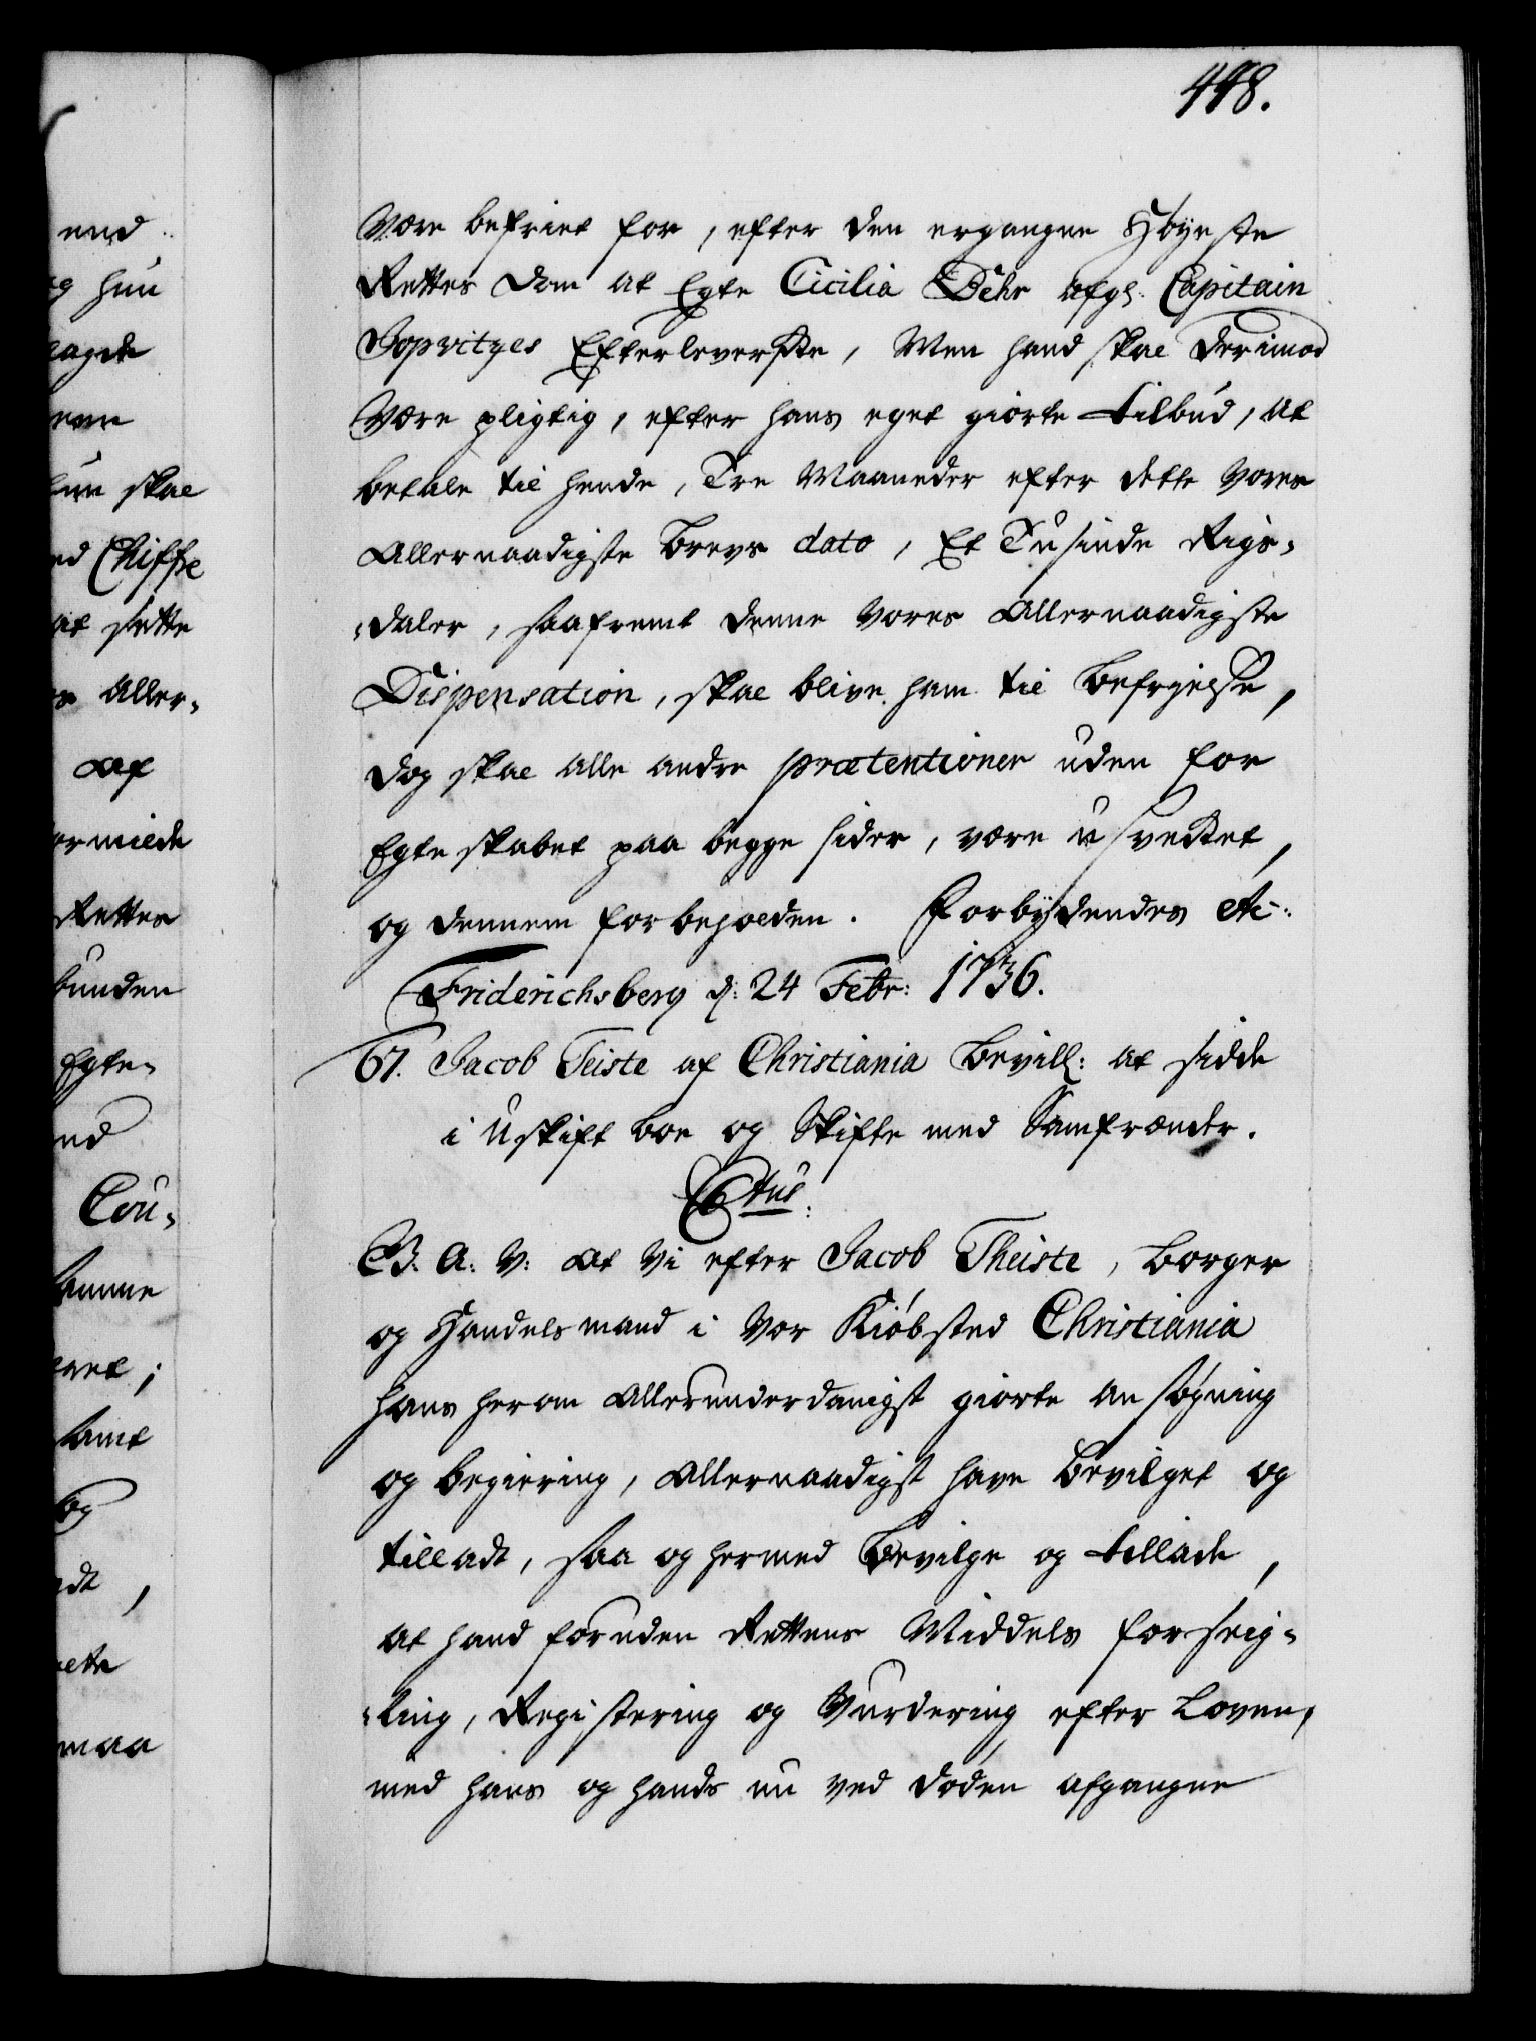 448.
end
og hun
lagde
nem
hun skal
ed Chiffre
at sette
Aller-
Af
formiede
Retter
bunden
Egte-
nd
Cou-
samme
samt
og
adt,
maa
Være befriet for, efter den ergangne Høyeste
Rettes Dom at Egte Cicilia Dehr afg: Capitain
Jopvitzes Efterleverske, Men hand skal derimod
Være pligtig, efter hans eget giorte tilbud, at
betale til hende, Tre Maaneder efter dette Vores
Allernaadigste brevs dato, Et Tusinde Rigs-
-daler, saafremt denne Vores Allernaadigste
Dispensation, skal blive ham til befryelse,
dog skal alle andre prætentioner uden for
Egteskabet paa begge sider, være usvekket,
og dennem forbeholden. Forbydendes etc:
Friderichsberg d: 24 Febr: 1736.
67. Jacob Teiste af Christiania bevill: at sidde
i Uskift boe og Skifte med Samfrænder.
C6tus:
G. A: V: At Vi efter Jacob Theiste, borger
og Handelsmand i Vor Kiøbsted Christiania
hans herom Allerunderdanigst giorte ansøgning
og begiering, Allernaadigst have bevilget og
tilladt, saa og hermed bevilge og tillade,
at hand foruden Rettens Middels forseig-
-ling, Registering og Vurdering efter Loven,
med hans og hands nu ved døden afgangne